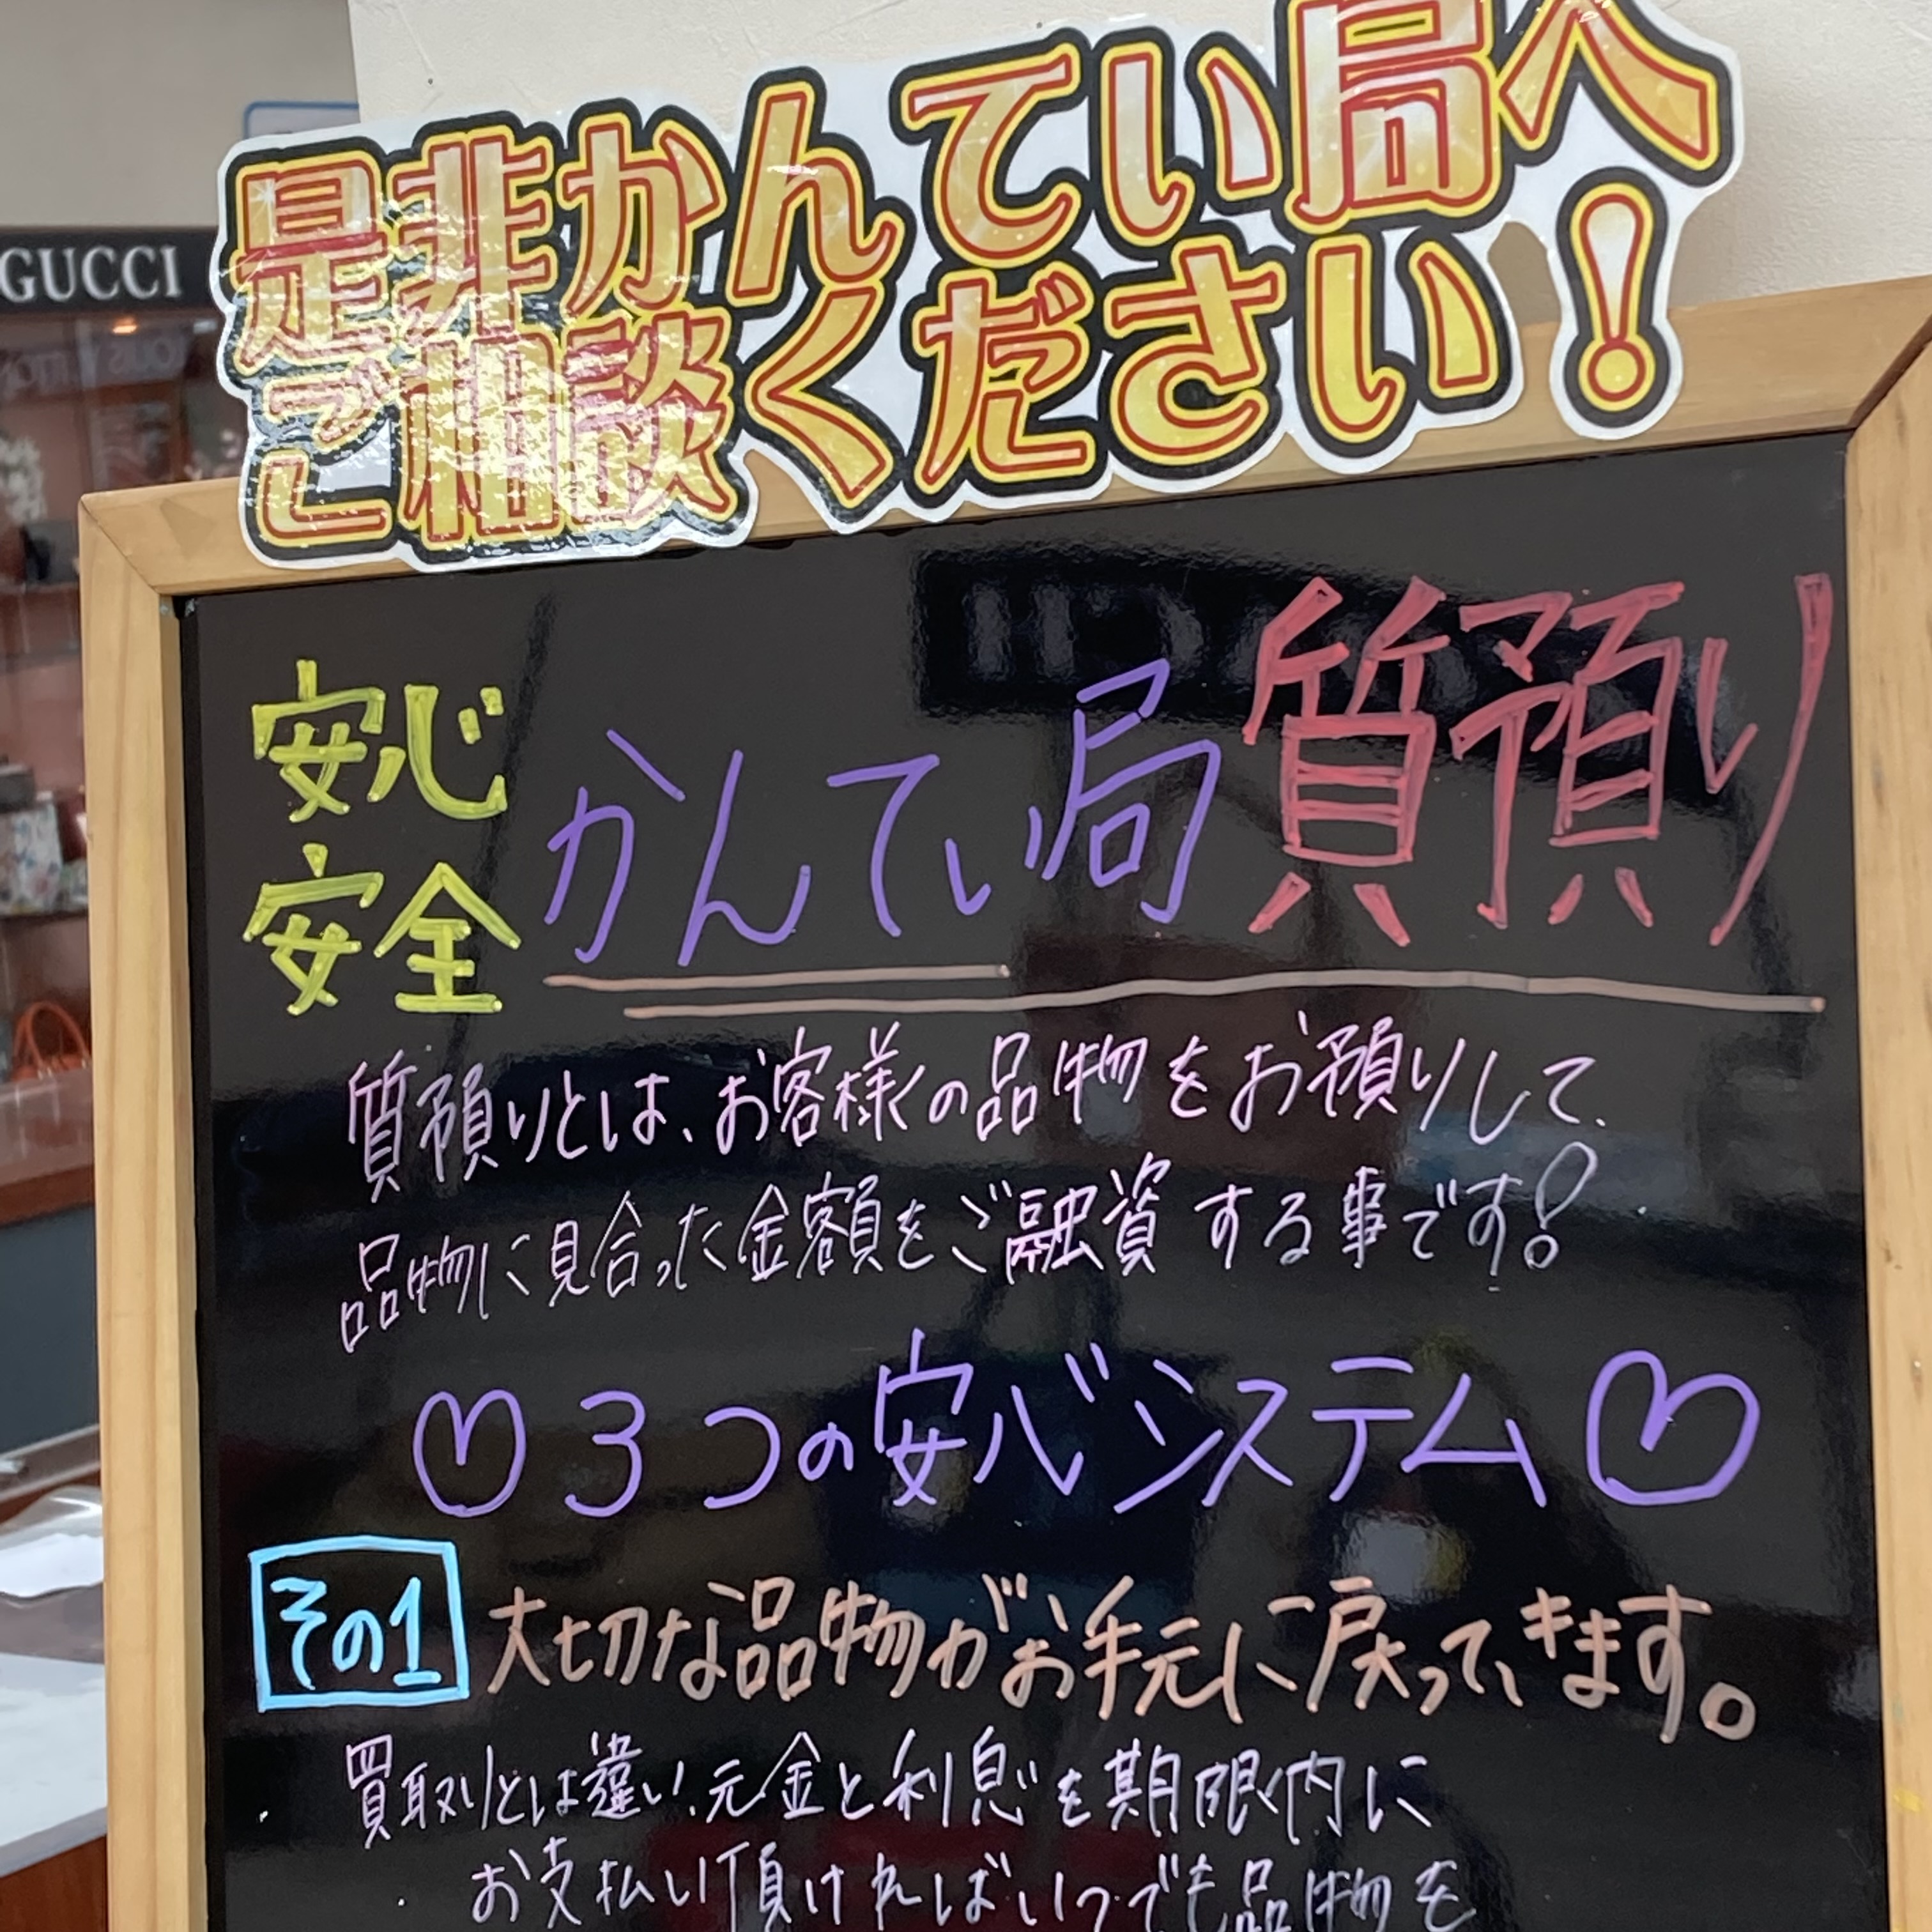 是非かんてい局へ
ご相談ください!
GUCCI
安心
安全
かんてい局 質預り
質預りとは、お客様の品物をお預りして、
品物に見合った金額をご融資する事です!
♡3つの安心システム♡
その1 大切な品物がお手元に戻ってきます。
買取りとは違い、元金と利息を期限内に
お支払い頂ければいつでも品物を